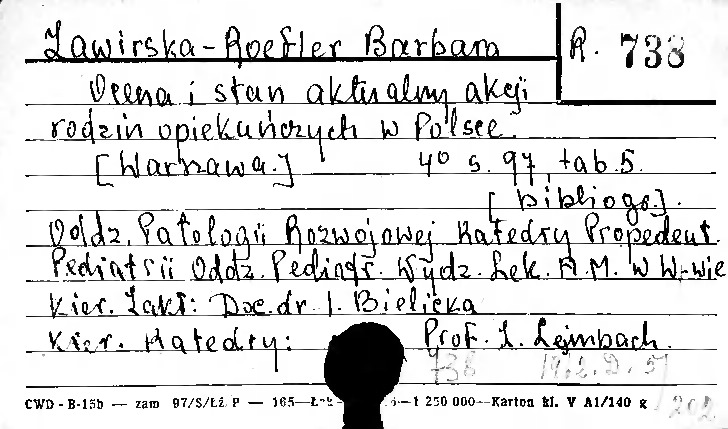 Zawirska-Roefler Barbara R. 738
Ocena i stan aktualny akcji
rodzin opiekuńczych w Polsce.
[Warszawa.] 4° s. 97, tab. 5.
[bibliogr.].
Oddz. Patologii Rozwojowej Katedry Propedeut.
Pediatrii Oddz. Pediatr. Wydz. Lek. A.M. w W-wie
Kier. Zakł: Doc. dr. I. Bielicka
Kier. Katedry: Prof. L. Lejmbach.
738
CWD - B-15b — zam 97/S/Łż P — 165— 1 250 000—Karton kl. V A1/140 g
202